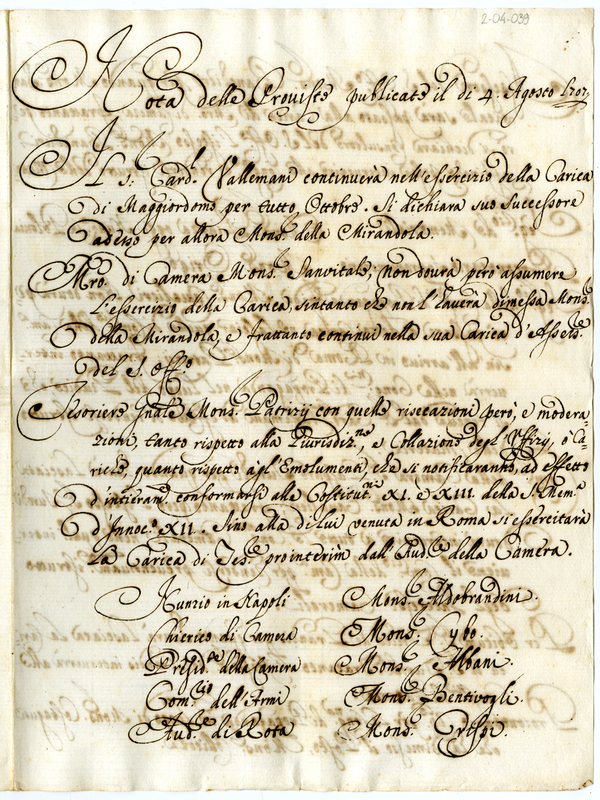 2-04-039
Nota delle Proviste publicate il di 4. Agosto 1707
Il S.r Card.l Vallemani continuerà nell'essercizio della Carica
di Maggiordomo per tutto Ottobre. Si dichiara suo successore
adesso per allora Mons.r della Mirandola.
Mro. di Camera Mons.r Sanvitale; non dourà però assumere
L'essercizio della Carica, sintanto che non l'hauerà dimessa Mons.r
della Mirandola, e frattanto continui nella sua Carica d'Assess.re
del S. Off.o
Tesoriere Gnãle Mons.r Patrizij con quelle risecazioni però, e modera=
zioni, tanto rispetto alla Giurisdiz.ne, e Collazione degl'Uffizij, ò Ca=
riche, quanto rispetto agl'Emolumenti, che si notificaranno, ad effetto
d'intieram.e conformarsi alle Costitut.ni XI. e XIII. della S. Mem.a
d'Innoc.o XII. Sino alla di lui venuta in Roma si essercitarà
La Carica di Tes.re prointerim dall'Aud.re della Camera.
Nunzio in Napoli Mons.r Aldobrandini.
Chierico di Camera Mons.r Cybo.
Presid.te della Camera Mons.r Albani.
Com.rio dell'Armi Mons.r Bentivogli.
Aud.re di Rota Mons.r Crispi.